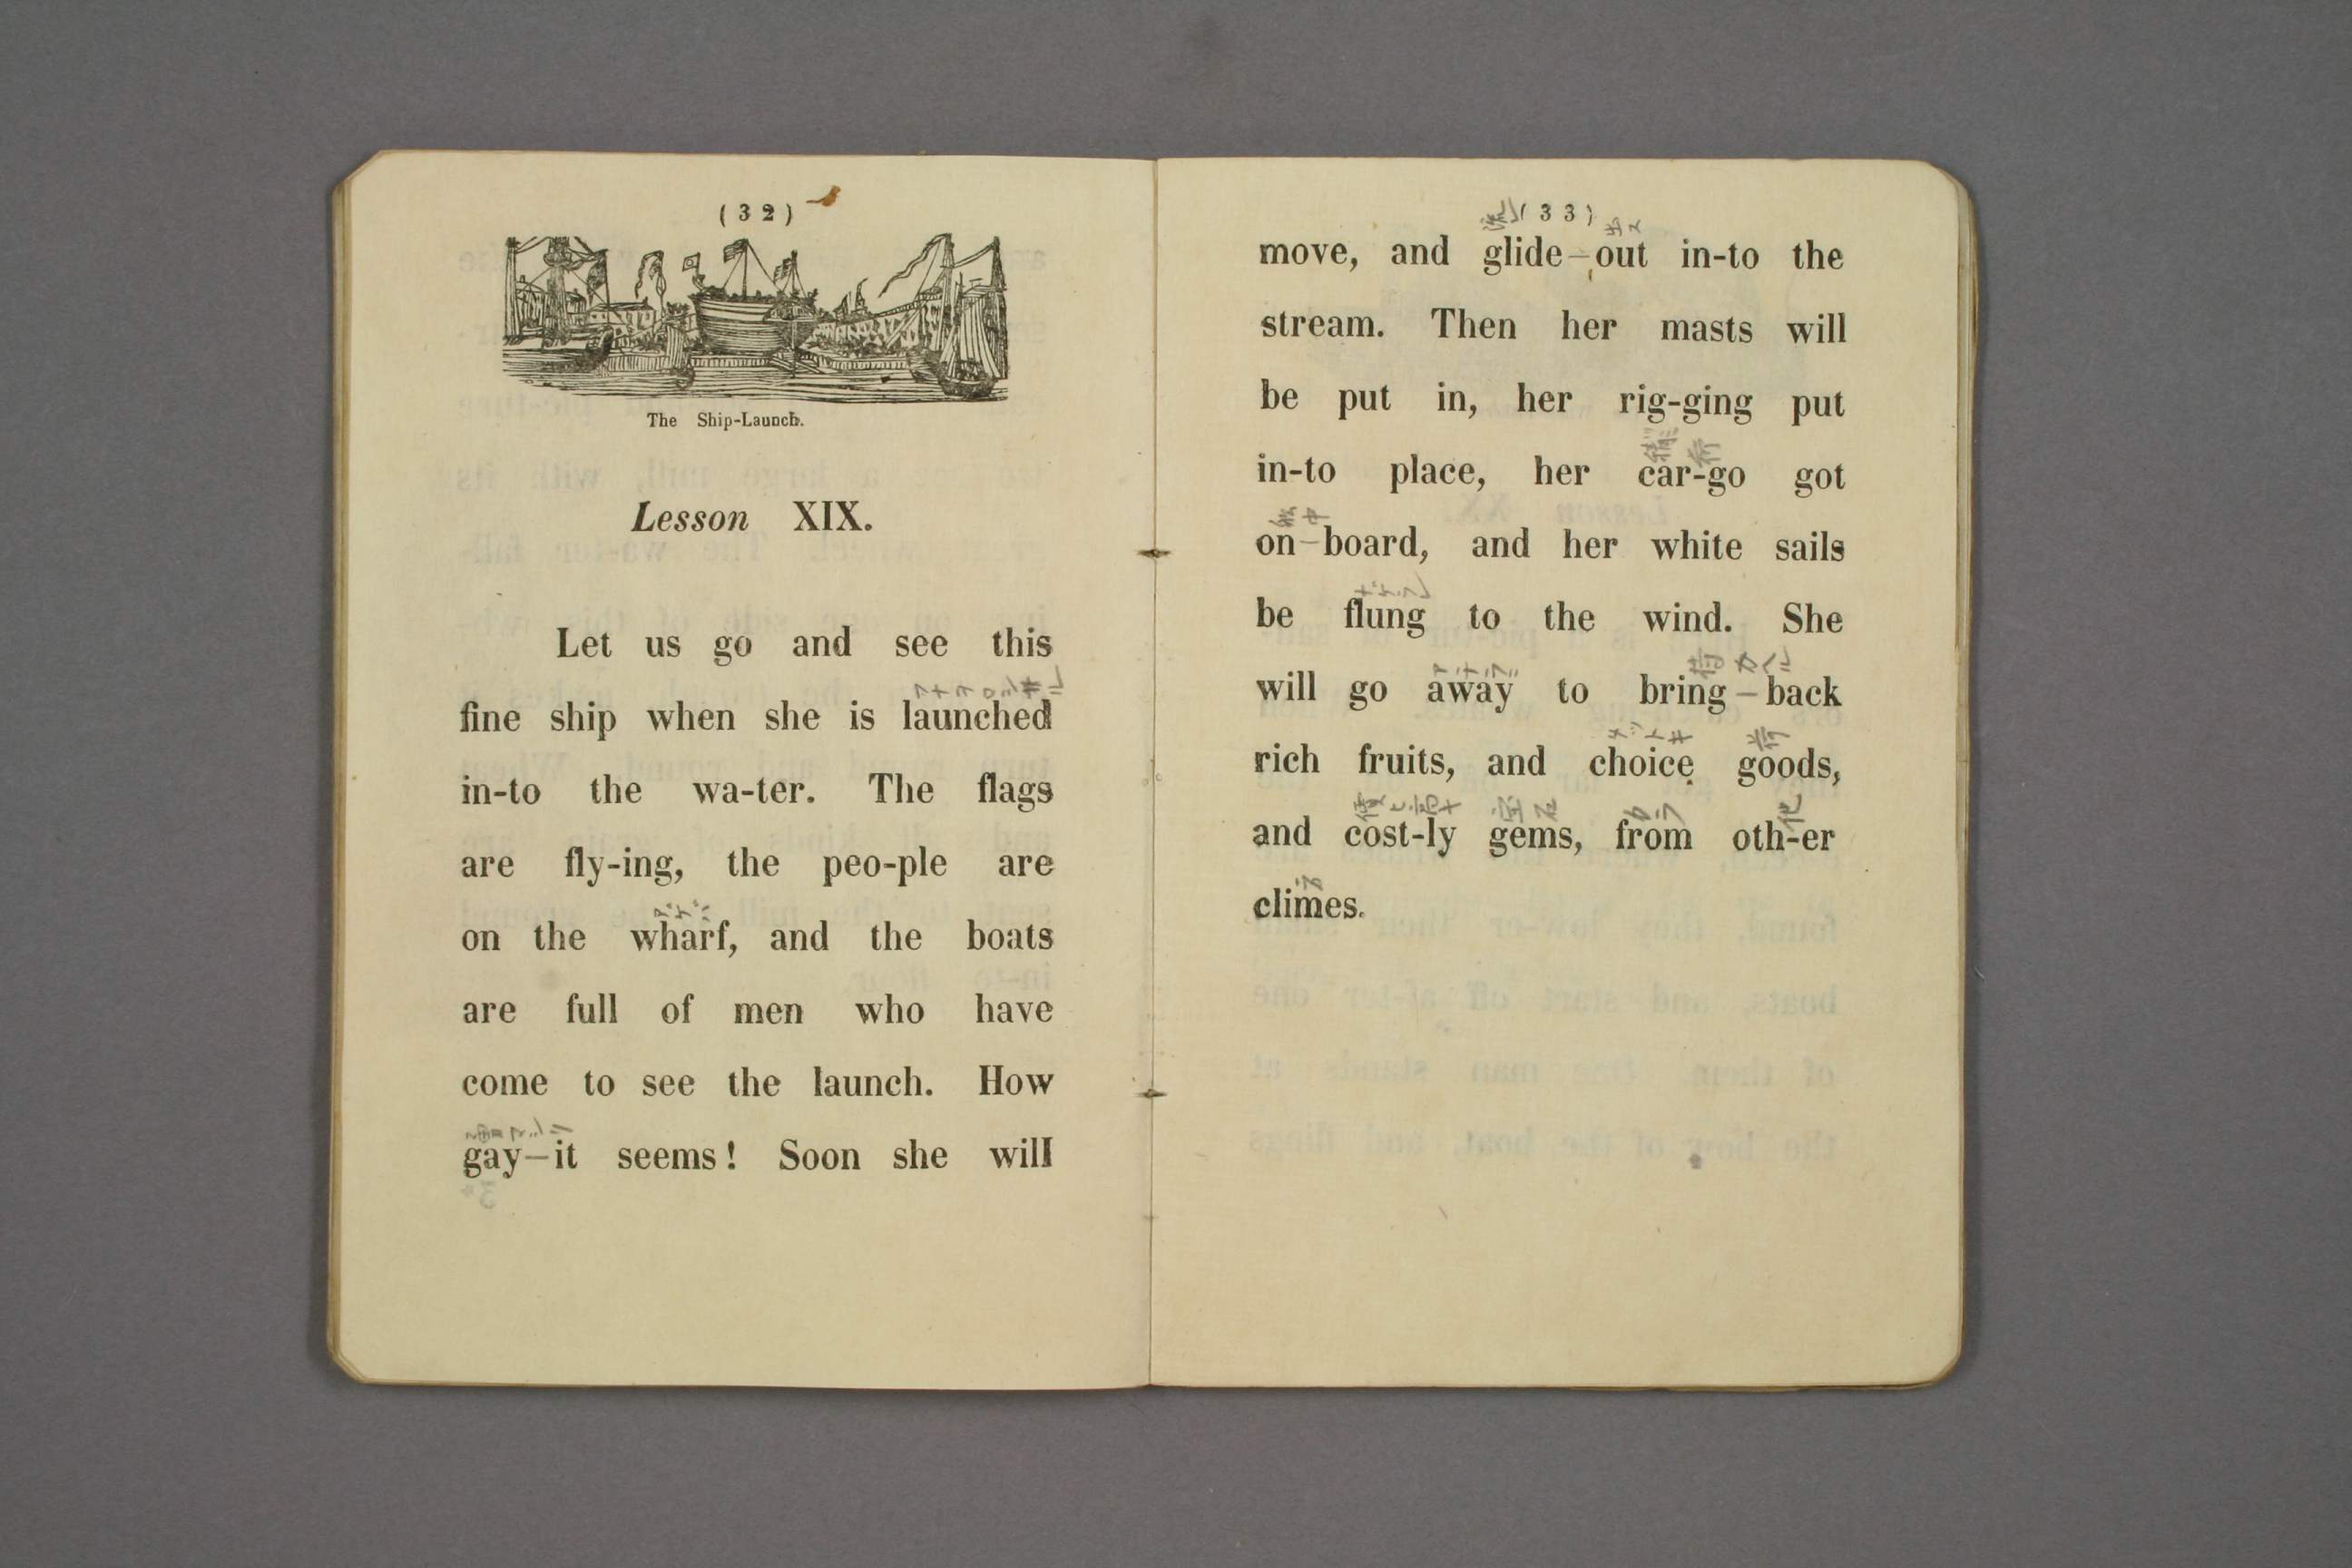 (32)
The Ship-Launch.
Lesson XIX.
Let us go and see this
fine ship when she is launched
in-to the wa-ter. The flags
are fly-ing, the peo-ple are
on the wharf, and the boats
are full of men who have
come to see the launch. How
gay—it seems! Soon she will
(33)
move, and glide-out in-to the
stream. Then her masts will
be put in, her rig-ging put
in-to place, her car-go got
on-board, and her white sails
be flung to the wind. She
will go away to bring-back
rich fruits, and choice goods,
and cost-ly gems, from oth-er
climes.